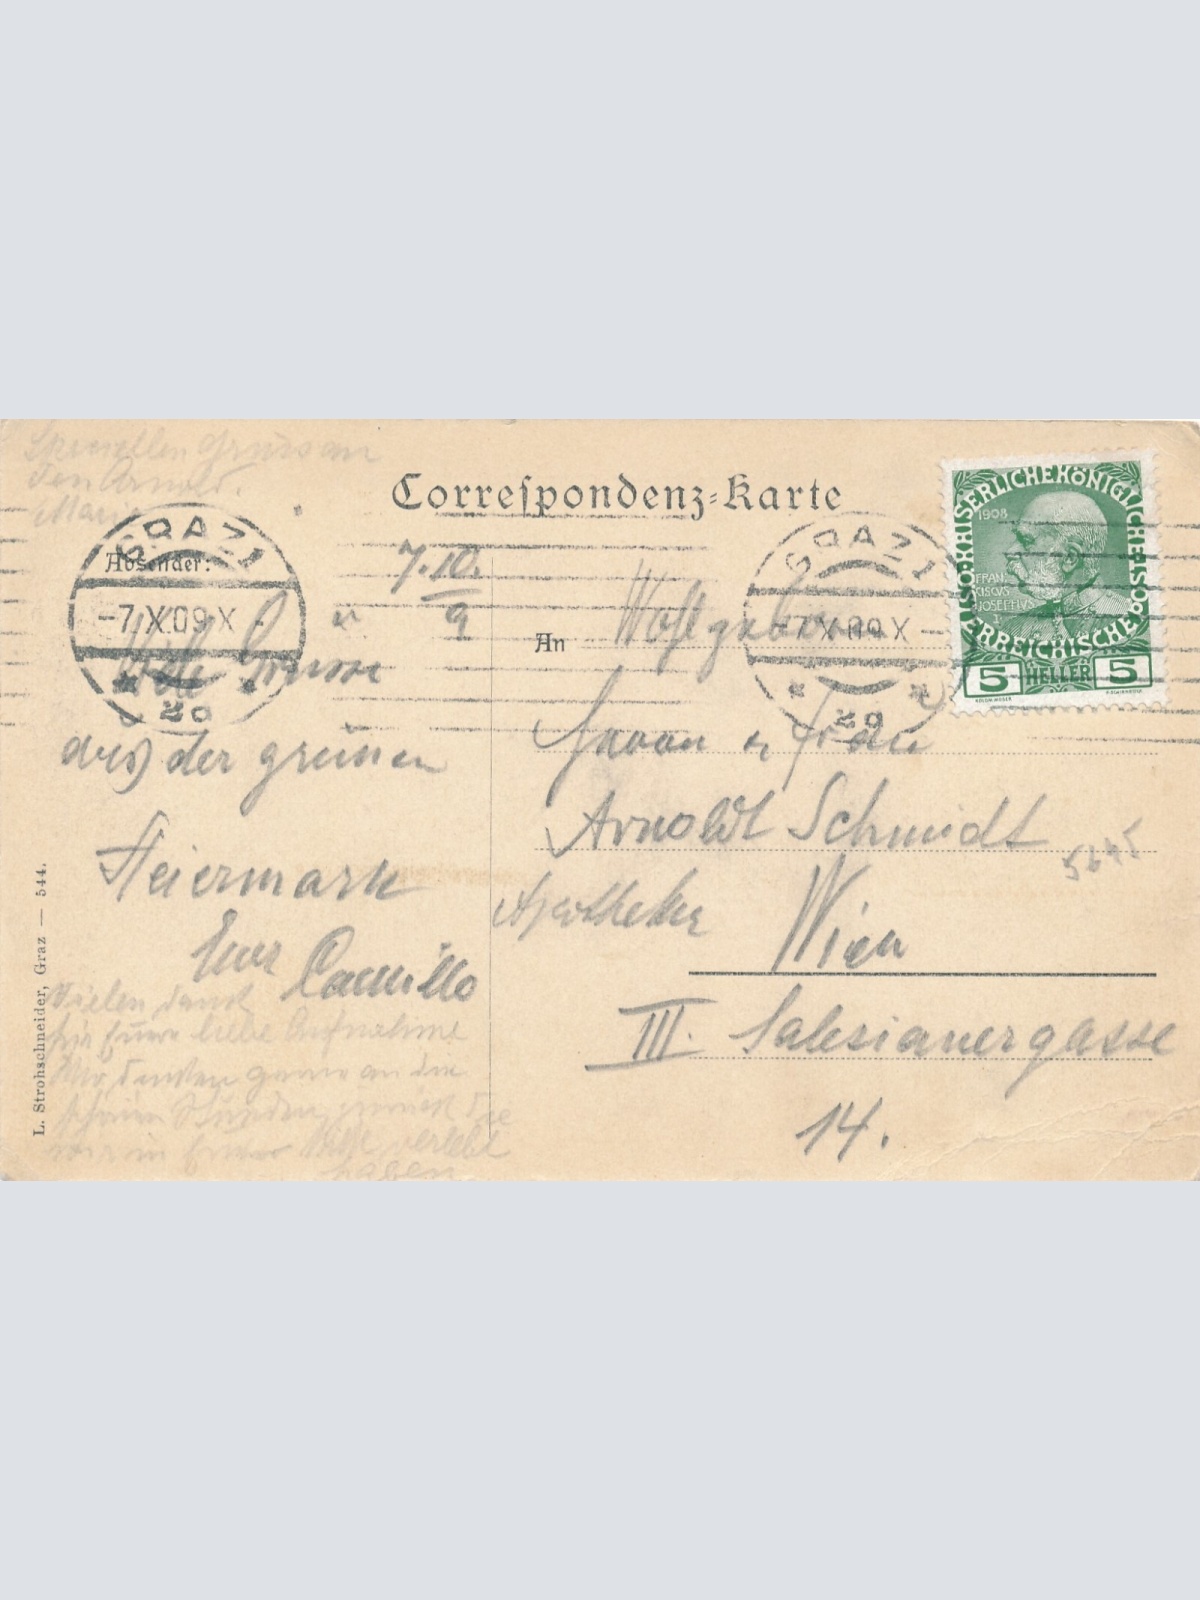 Speciellen Gruss an
Den Arnold.
Marie
Correspondenz-Karte
Absender:
GRAZ 1
-7.X.09.X
2a
7.10.
9
Viele Grüsse
aus der grünen
Steiermark
Euer Camillo
Vielen Dank
für Eure liebe Aufnahme
Wir denken gerne an die
schönen Stunden zurück die
wir in Eurer Nähe verlebt
haben
L. Strohschneider, Graz — 544.
An Wohlgeboren
Herrn u Frau
Arnoldt Schmidt
Apotheker Wien
III. Salesianergasse
14.
GRAZ 1
-7.X.09.X-
2a
KAISERLICHE KÖNIGLICHE ÖSTERREICHISCHE POST
1908
FRAN
CISCVS
JOSEPHVS
I
5 HELLER 5